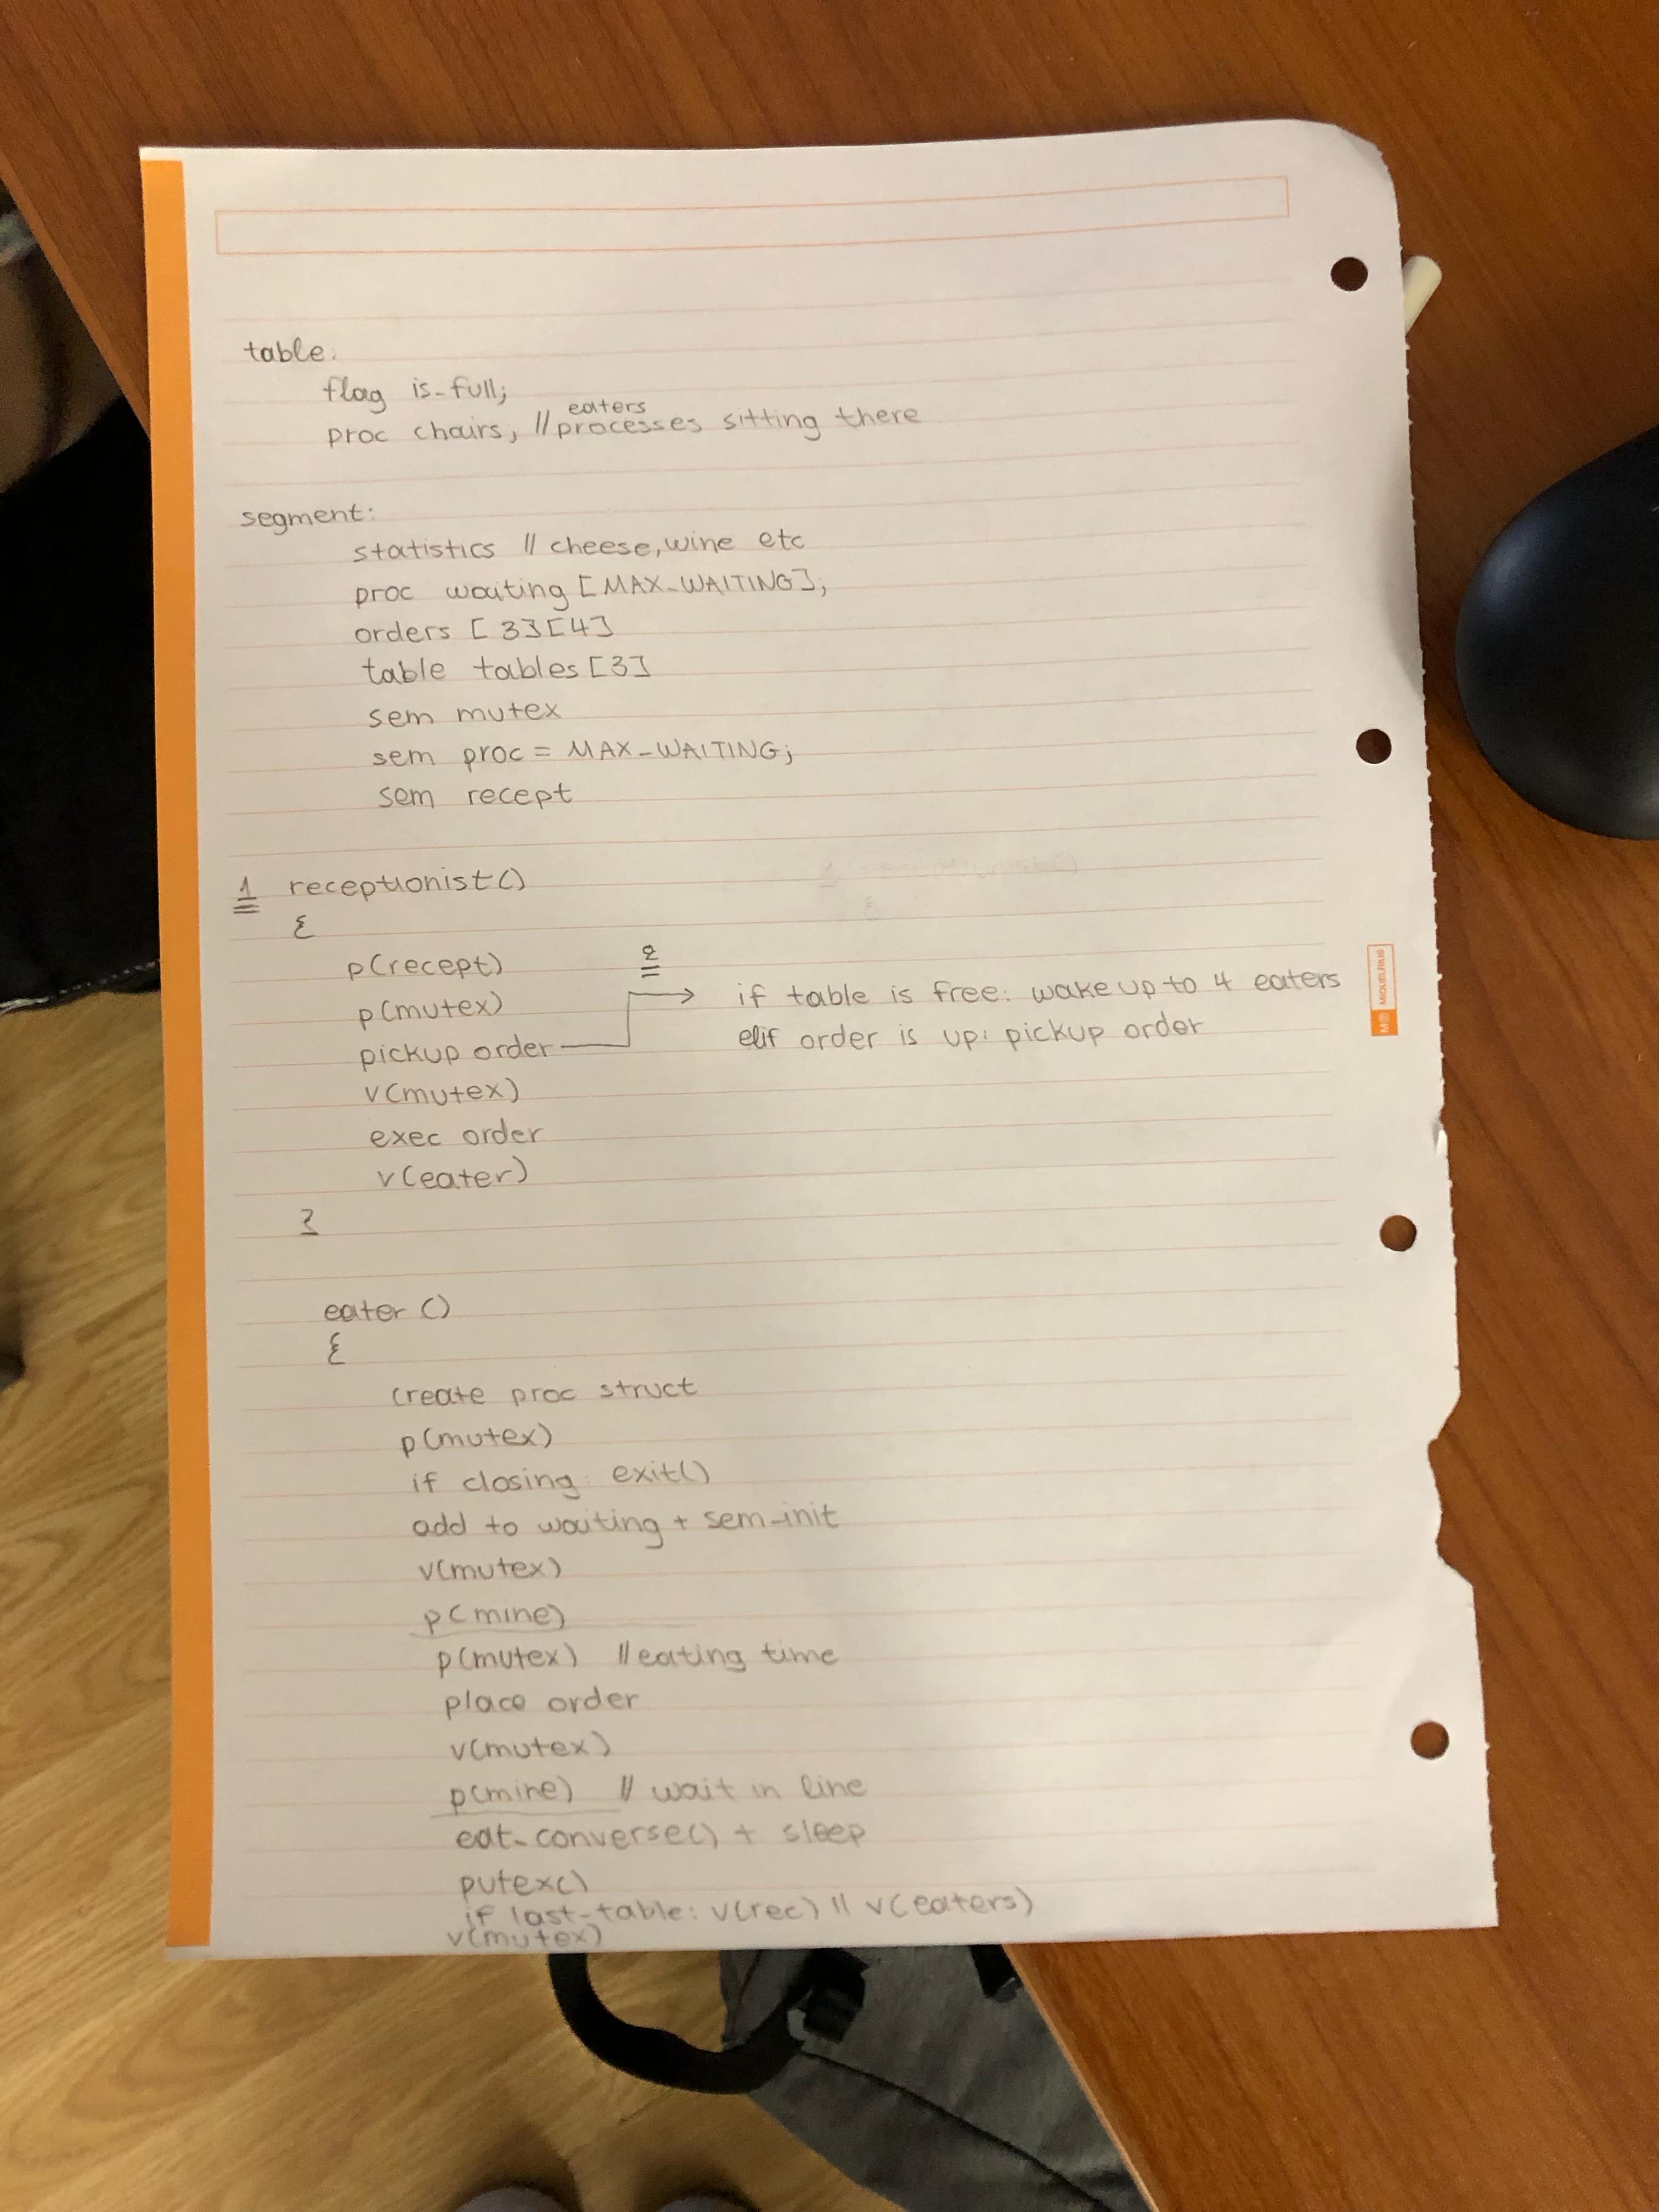 table:
flag is_full;
eaters
proc chairs, // processes sitting there
segment:
statistics // cheese, wine etc
proc waiting [MAX_WAITING];
orders [3][4]
table tables [3]
sem mutex
sem proc = MAX_WAITING;
sem recept
1 receptionist()
{
p(recept)
2
p(mutex)
if table is free: wake up to 4 eaters
pickup order
elif order is up: pickup order
v(mutex)
exec order
v(eater)
}
eater ()
{
create proc struct
p(mutex)
if closing: exit()
add to waiting + sem_init
v(mutex)
p(mine)
p(mutex) // eating time
place order
v(mutex)
p(mine) // wait in line
eat_converse() + sleep
putex()
if last-table: v(rec) || v(eaters)
v(mutex)
MIQUELRIUS